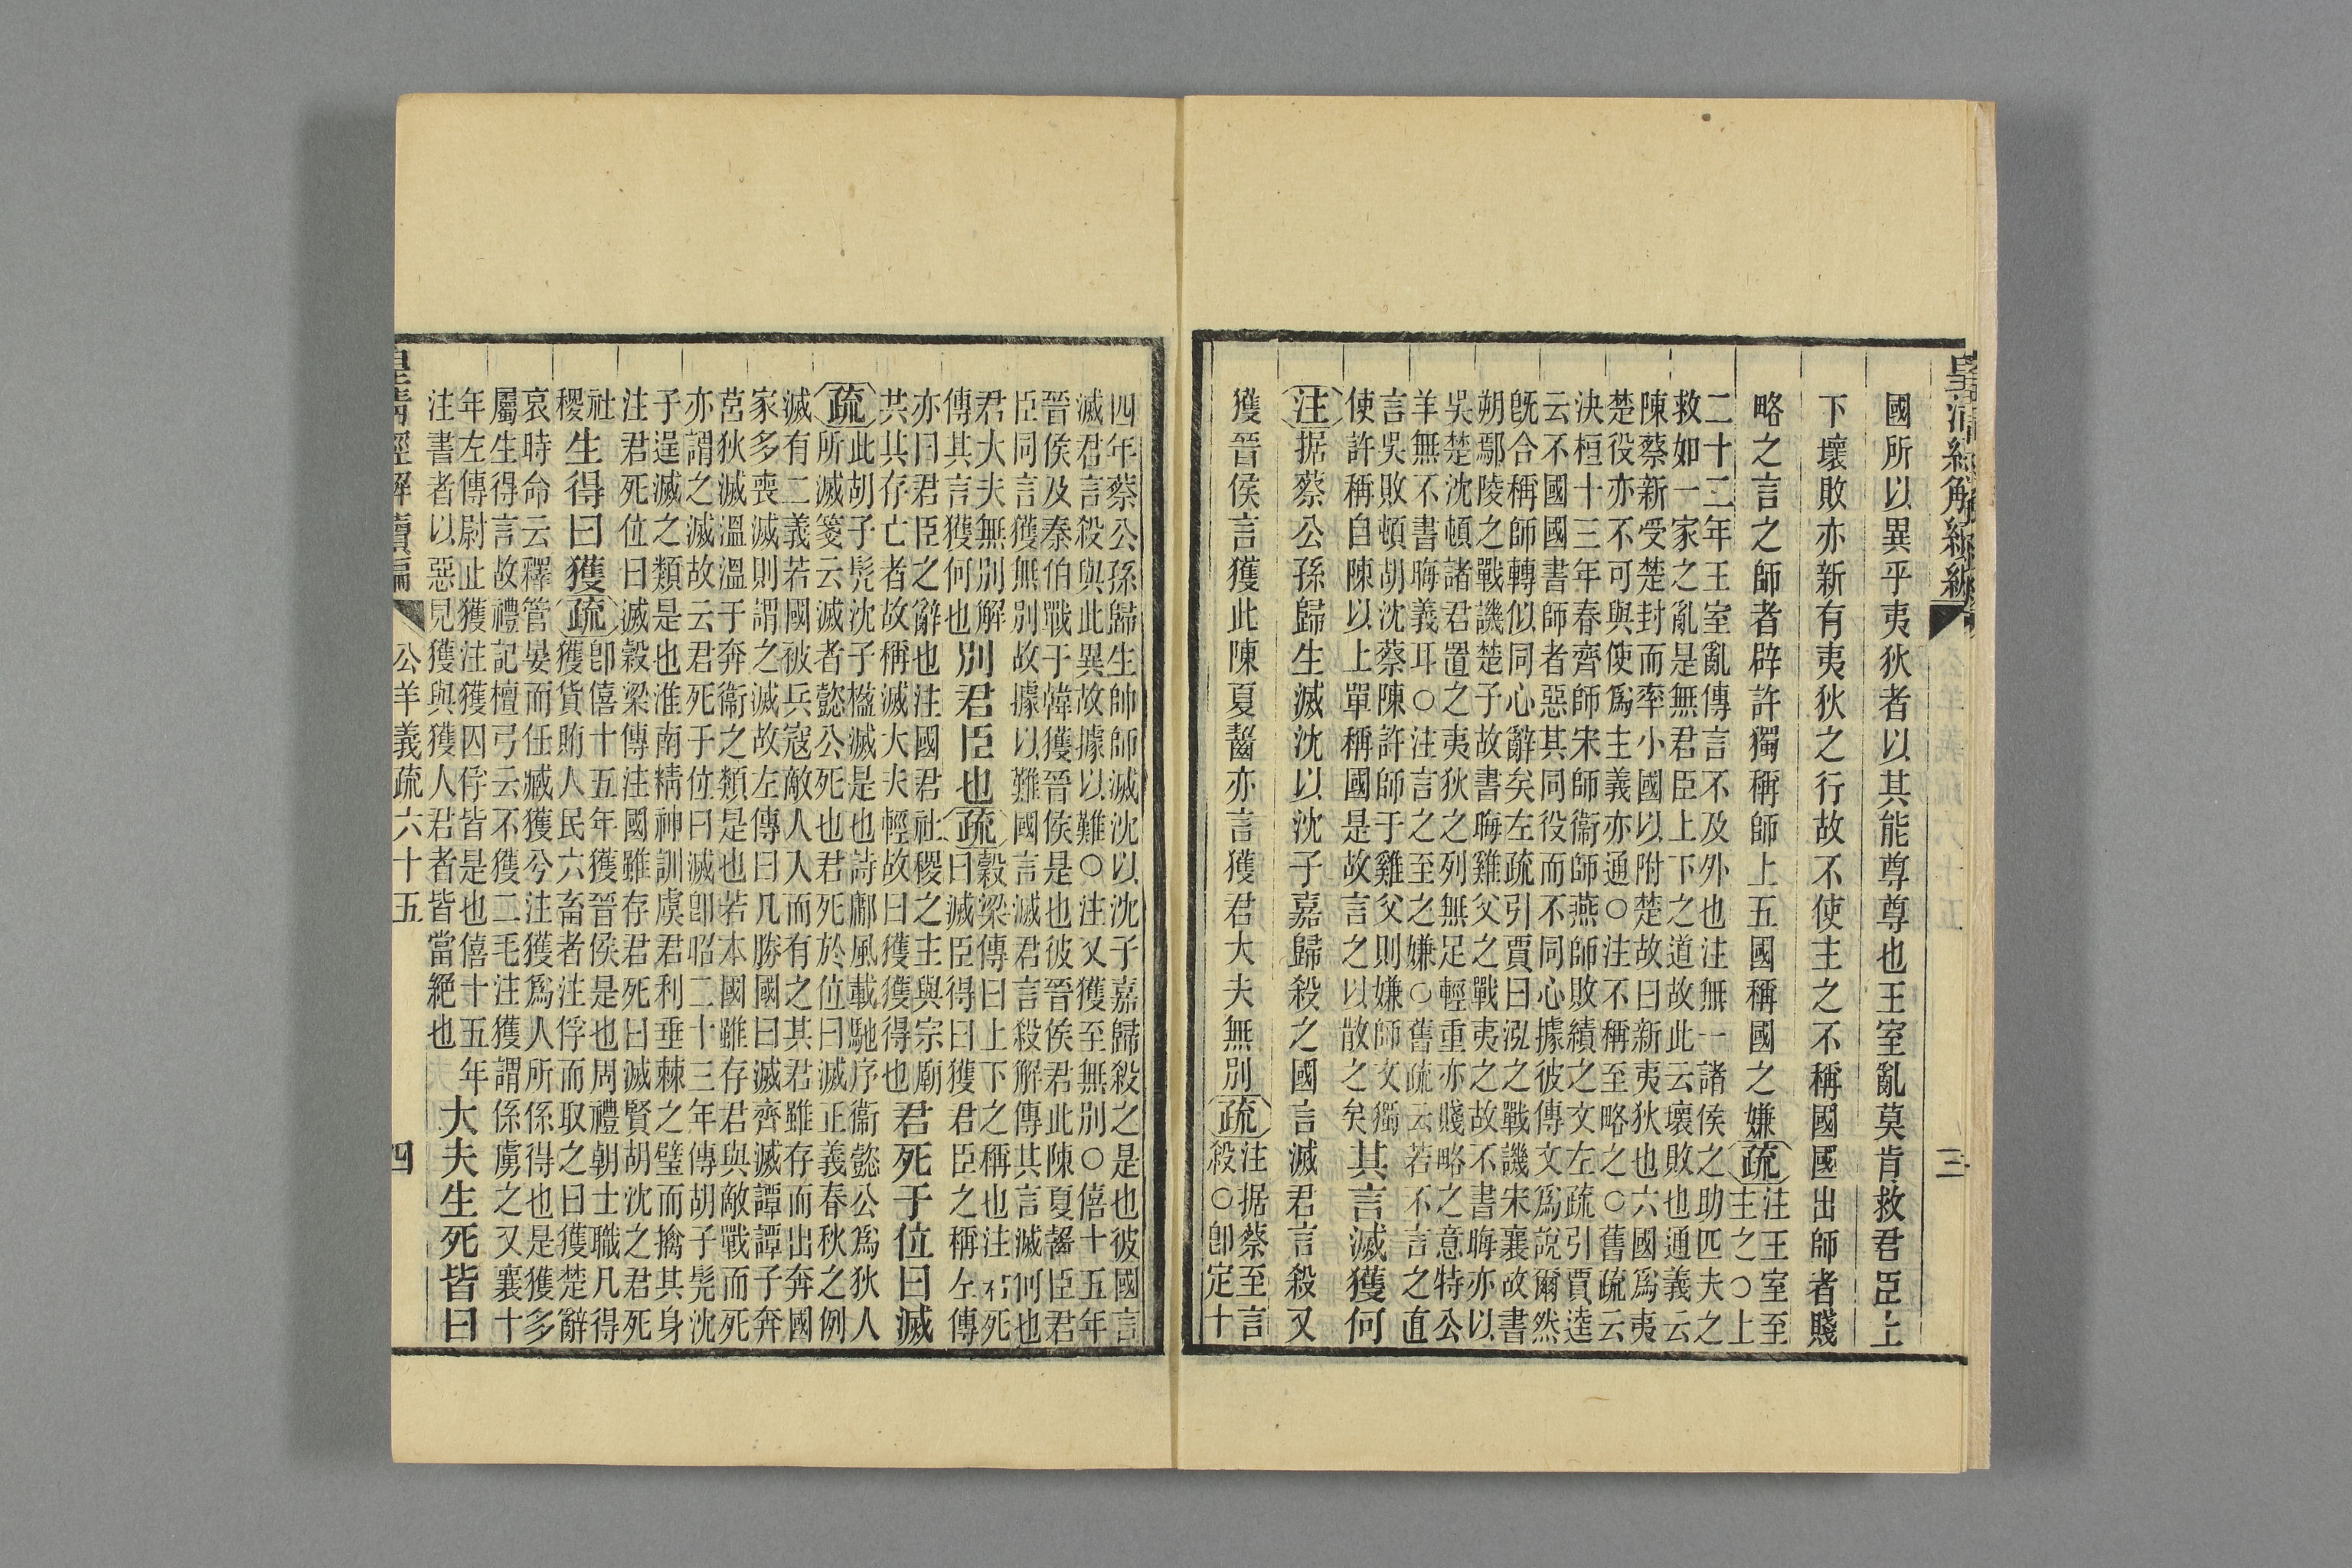 皇清經解續編
三
國所以異乎夷狄者以其能尊尊也王室亂莫肯救君臣上
下壞敗亦新有夷狄之行故不使主之不稱國國出師者賤
略之言之師者辟許獨稱師上五國稱國之嫌疏
注王室至
主之○上
二十二年王室亂傳言不及外也注無一諸侯之助匹夫之
救如一家之亂是無君臣上下之道故此云壞敗也通義云
陳蔡新受楚封而率小國以附楚故曰新夷狄也六國爲夷
楚役亦不可與使爲主義亦通○注不稱至略之○舊疏云
決桓十三年春齊師宋師衞師燕師敗績之文左疏引賈逵
云不國國書師者惡其同役而不同心據彼傳文爲說爾然
旣合稱師轉似同心辭矣左疏引賈曰泓之戰譏宋襄故書
朔鄢陵之戰譏楚子故書晦雞父之戰夷之故不書晦亦以
吳楚沈頓諸君置之夷狄之列無足輕重亦賤略之意特公
羊無不書晦義耳○注言之至之嫌○舊疏云若不言之直
言吳敗頓胡沈蔡陳許師于雞父則嫌師文獨
使許稱自陳以上單稱國是故言之以散之矣
其言滅獲何
注据蔡公孫歸生滅沈以沈子嘉歸殺之國言滅君言殺又
獲晉侯言獲此陳夏齧亦言獲君大夫無別疏
注据蔡至言
殺○卽定十
四年蔡公孫歸生帥師滅沈以沈子嘉歸殺之是也彼國言
滅君言殺與此異故據以難○注又獲至無別○僖十五年
晉侯及秦伯戰于韓獲晉侯是也彼晉侯君此陳夏齧臣君
臣同言獲無別故據以難國言滅君言殺解傳其言滅何也
君大夫無別解
傳其言獲何也
別君臣也疏
穀梁傳曰上下之稱也注君死
曰滅臣得曰獲君臣之稱左傳
亦曰君臣之辭也注國君社稷之主與宗廟
共其存亡者故稱滅大夫輕故曰獲獲得也
君死于位曰滅
疏
此胡子髡沈子楹滅是也詩鄘風載馳序衞懿公爲狄人
所滅箋云滅者懿公死也君死於位曰滅正義春秋之例
滅有二義若國被兵寇敵人入而有之其君雖存而出奔國
家多喪滅則謂之滅故左傳曰凡勝國曰滅齊滅譚譚子奔
莒狄滅溫溫子奔衞之類是也若本國雖存君與敵戰而死
亦謂之滅故云君死于位曰滅卽昭二十三年傳胡子髡沈
子逞滅之類是也淮南精神訓虞君利垂棘之璧而擒其身
注君死位曰滅穀梁傳注國雖存君死曰滅賢胡沈之君死
社
稷
生得曰獲疏
卽僖十五年獲晉侯是也周禮朝士職凡得
獲貨賄人民六畜者注俘而取之曰獲楚辭
哀時命云釋管晏而任臧獲兮注獲爲人所係得也是獲多
屬生得言故禮記檀弓云不獲二毛注獲謂係虜之又襄十
年左傳尉止獲注獲囚俘皆是也僖十五年
注書者以惡見獲與獲人君者皆當絕也
大夫生死皆曰
皇清經解續編
公羊義疏六十五
四